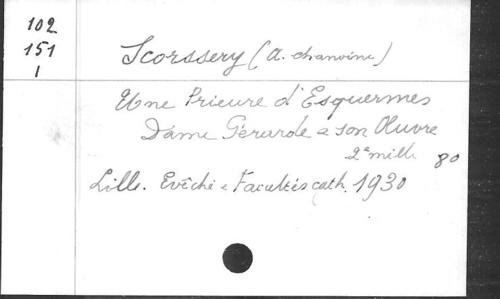 102
151
1
Scorssery (A. chanoine)
Une Prieure d'Esquermes
Dame Gérarde & son Œuvre
2e mill. 80
Lille. Evêché & Facultés cath. 1930